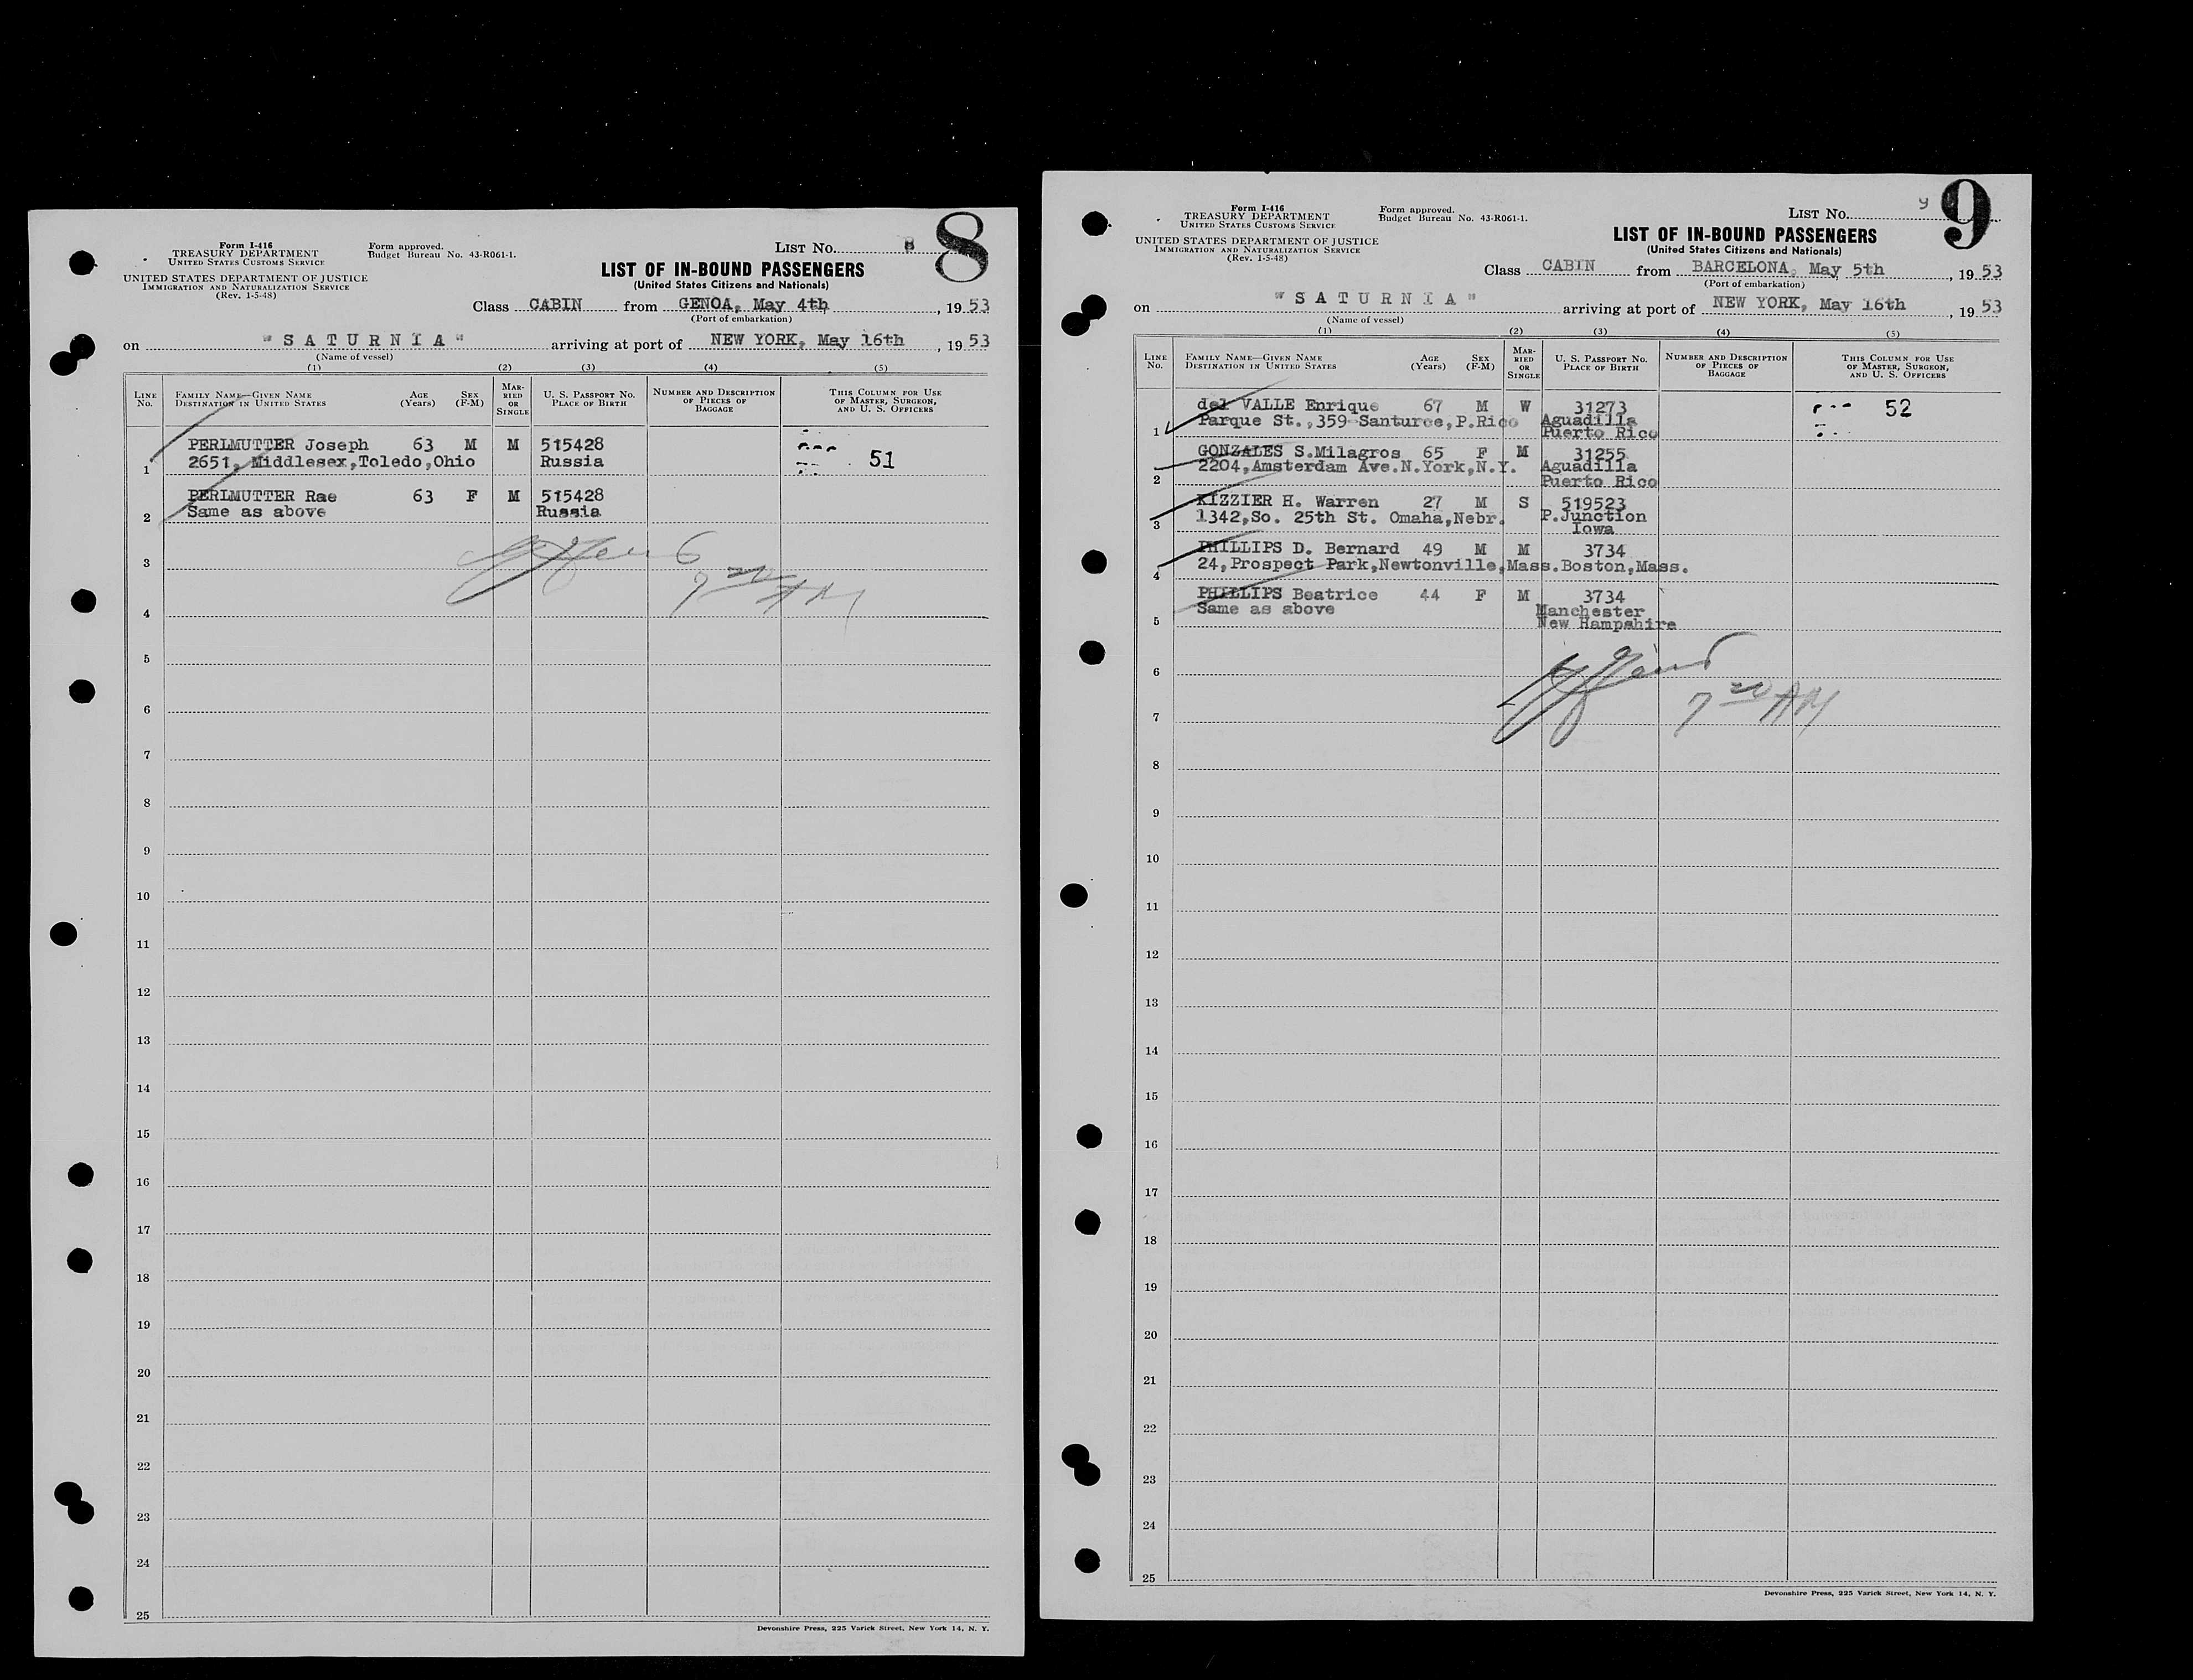 8
Form I-416
TREASURY DEPARTMENT
UNITED STATES CUSTOMS SERVICE
Form approved.
Budget Bureau No. 43-R061-1.
LIST No. 8
UNITED STATES DEPARTMENT OF JUSTICE
IMMIGRATION AND NATURALIZATION SERVICE
(Rev. 1-5-48)
LIST OF IN-BOUND PASSENGERS
(United States Citizens and Nationals)
Class CABIN from GENOA, May 4th, 19 53
(Port of embarkation)
on "SATURNIA" arriving at port of NEW YORK, May 16th, 19 53
(Name of vessel)
(1) (2) (3) (4) (5)
LINE No. FAMILY NAME—GIVEN NAME DESTINATION IN UNITED STATES AGE (Years) SEX (F-M) MARRIED OR SINGLE U. S. PASSPORT No. PLACE OF BIRTH NUMBER AND DESCRIPTION OF PIECES OF BAGGAGE THIS COLUMN FOR USE OF MASTER, SURGEON, AND U. S. OFFICERS
PERLMUTTER Joseph 63 M M 515428
1 2651, Middlesex,Toledo,Ohio Russia 51
PERLMUTTER Rae 63 F M 515428
2 Same as above Russia
3
7 20 AM
4
5
6
7
8
9
10
11
12
13
14
15
16
17
18
19
20
21
22
23
24
25
Devonshire Press, 225 Varick Street, New York 14, N. Y.
9
Form I-416
TREASURY DEPARTMENT
UNITED STATES CUSTOMS SERVICE
Form approved.
Budget Bureau No. 43-R061-1.
LIST No. 9
UNITED STATES DEPARTMENT OF JUSTICE
IMMIGRATION AND NATURALIZATION SERVICE
(Rev. 1-5-48)
LIST OF IN-BOUND PASSENGERS
(United States Citizens and Nationals)
Class CABIN from BARCELONA, May 5th, 19 53
(Port of embarkation)
on "SATURNIA" arriving at port of NEW YORK, May 16th, 19 53
(Name of vessel)
(1) (2) (3) (4) (5)
LINE No. FAMILY NAME—GIVEN NAME DESTINATION IN UNITED STATES AGE (Years) SEX (F-M) MARRIED OR SINGLE U. S. PASSPORT No. PLACE OF BIRTH NUMBER AND DESCRIPTION OF PIECES OF BAGGAGE THIS COLUMN FOR USE OF MASTER, SURGEON, AND U. S. OFFICERS
del VALLE Enrique 67 M W 31273 52
Parque St.,359 Santurce,P.Rico Aguadilla
1 Puerto Rico
GONZALES S.Milagros 65 F M 31255
2204,Amsterdam Ave.N.York,N.Y. Aguadilla
2 Puerto Rico
KIZZIER H. Warren 27 M S 519523
1342,So. 25th St. Omaha,Nebr. P.Junction
3 Iowa
PHILLIPS D. Bernard 49 M M 3734
24,Prospect Park,Newtonville,Mass.Boston,Mass.
4
PHILLIPS Beatrice 44 F M 3734
Same as above Manchester
5 New Hampshire
6
7 20 AM
7
8
9
10
11
12
13
14
15
16
17
18
19
20
21
22
23
24
25
Devonshire Press, 225 Varick Street, New York 14, N. Y.